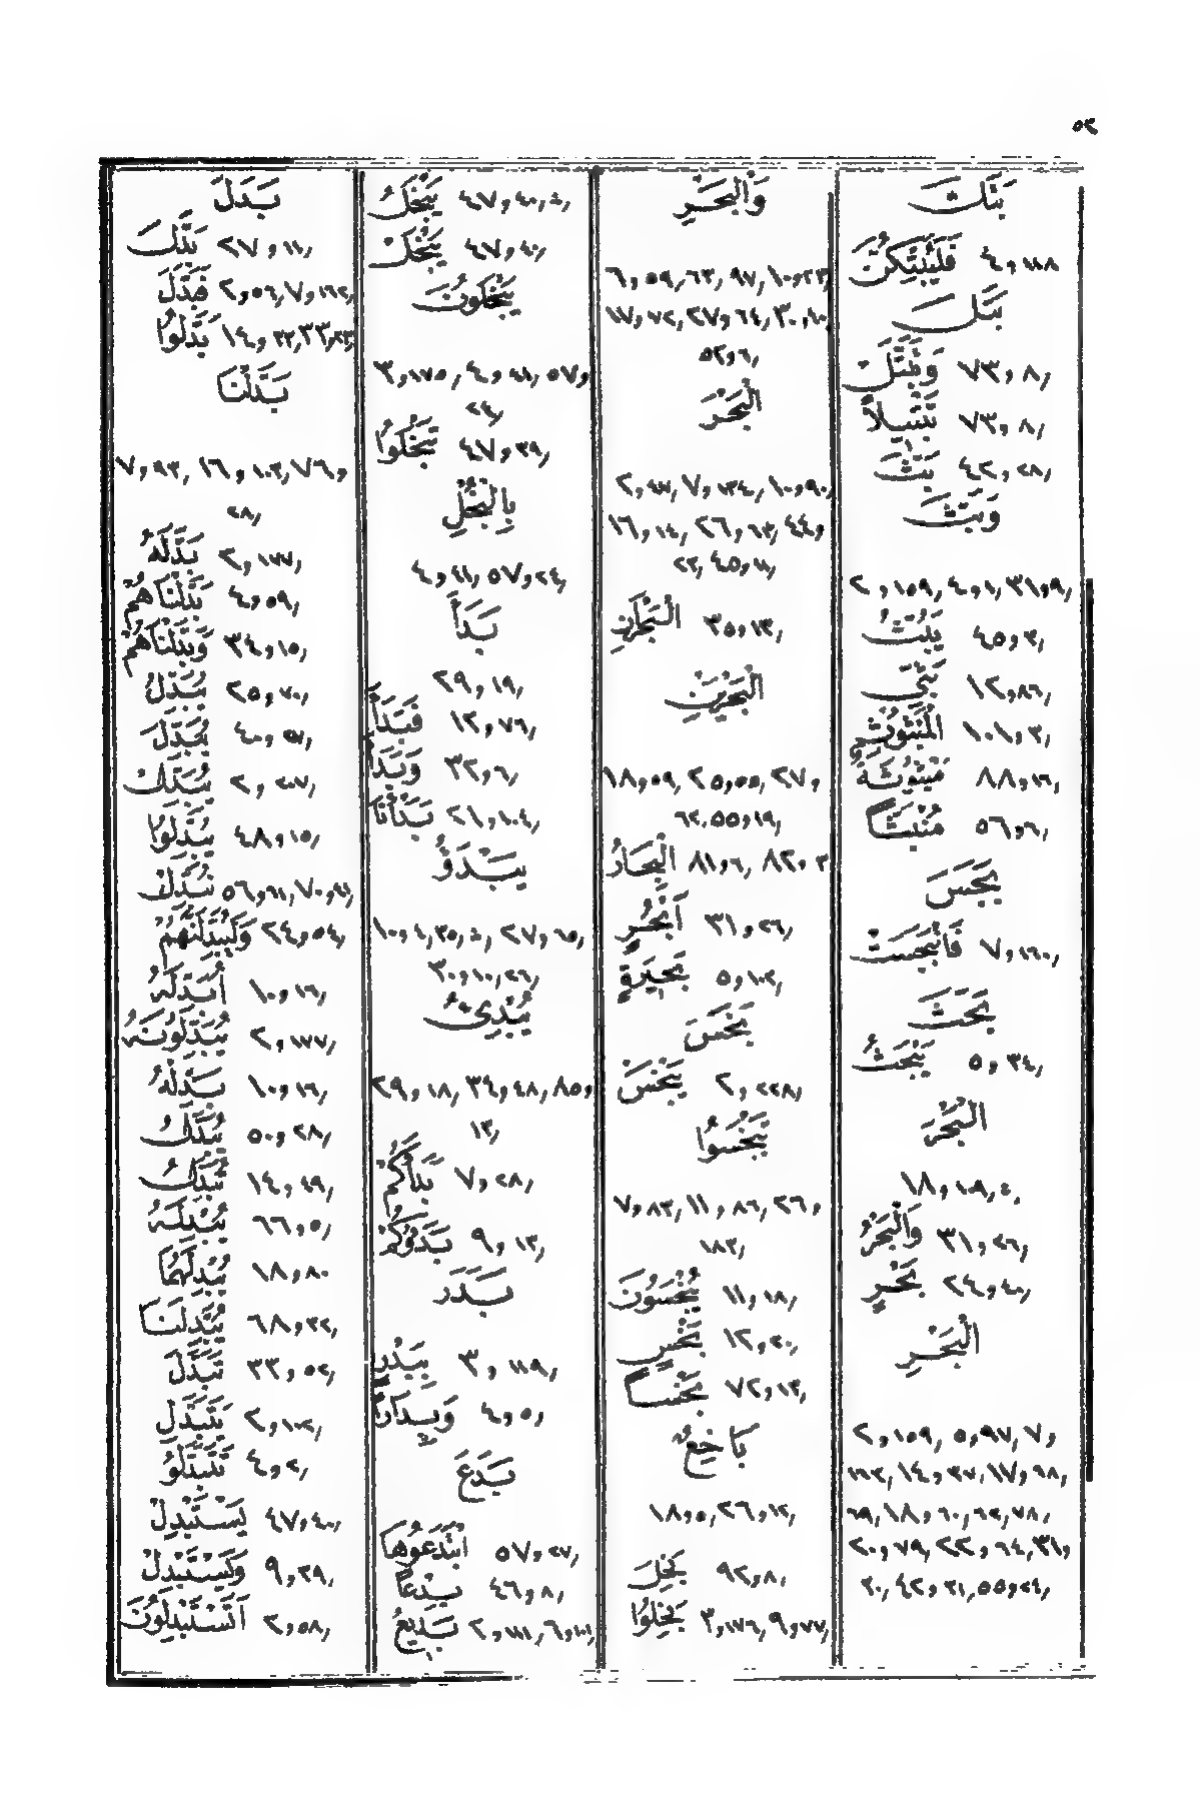 ٥٢
بَتَكَ
فَلَيُبَتِّكُنَّ ٤,١١٨
بَتَلَ
وَتَبَتَّلْ ٧٣,٨
تَبْتِيلاً ٧٣,٨
بَثَّ ٤٢,٢٨
وَبَثَّ
٢,١٥٩, ٤,١, ٣١,٩
يَبُثُّ ٤٥,٣
بَثِّي ١٢,٨٦
الْمَبْثُوثِ ١٠١,٣
مَبْثُوثَةٌ ٨٨,١٦
مُنْبَثًّا ٥٦,٦
بَجَسَ
فَانْبَجَسَتْ ٧,١٦٠
بَحَثَ
يَبْحَثُ ٥,٣٤
الْبَحْرُ
١٨,١٠٩
وَالْبَحْرُ ٣١,٢٦
بَحْرٍ ٢٤,٤٠
الْبَحْرِ
٢,١٥٩, ٥,٩٧, ٧,
١٤,٣٧, ١٧,٦٨,
٦٩, ١٨,٦٠,٦٢,٧٨,
٢٠,٧٩, ٢٢,٦٤, ٣١,
٣٠, ٤٢,٣١, ٥٥,٢٤
وَالْبَحْرِ
٦,٥٩,٦٣,٩٧, ١٠,٢٣,
١٧,٧٢, ٢٧,٦٤, ٣٠,٤٠,
٥٢,٦
الْبَحْرَ
٢,٤٧, ٧,١٣٤, ١٠,٩٠,
١٦,١٤, ٢٦,٦٣, ٤٤,
٢٣, ٤٥,١١
الْبَحْرَانِ ٣٥,١٣
الْبَحْرَيْنِ
١٨,٥٩, ٢٥,٥٥, ٢٧,
٦٢, ٥٥,١٩
الْبِحَارُ ٨١,٦, ٨٢,٣
أَبْحُرٍ ٣١,٢٦
بَحِيرَةٍ ٥,١٠٢
بَخَسَ
يَبْخَسْ ٢,٢٨٢
تَبْخَسُوا
٧,٨٣, ١١,٨٦, ٢٦,
١٨٣
يُبْخَسُونَ ١١,١٨
بَخْسٍ ١٢,٢٠
بَخْسًا ٧٢,١٣
بَاخِعٌ
١٨,٥, ٢٦,١٢
بَخِلَ ٩٢,٨
بَخِلُوا ٣,١٧٦, ٩,٧٧
يَبْخَلُ ٤٧,٤٠
يَبْخَلْ ٤٧,٤٠
يَبْخَلُونَ
٣,١٧٥, ٤,٤١, ٥٧,
٢٤
تَبْخَلُوا ٤٧,٣٩
بِالْبُخْلِ
٤,٤١, ٥٧,٢٤
بَدَأَ
٢٩,١٩
فَبَدَأَ ١٢,٧٦
وَبَدَأَ ٣٢,٦
بَدَأْنَا ٢١,١٠٤
يَبْدَؤُ
١٠,٤,٣٥, ٢٧,٦٥
٣٠,١٠,٢٦
يُبْدِئُ
٢٩,١٨, ٣٤,٤٨, ٨٥,
١٣
بَدَأَكُمْ ٧,٢٨
بَدَؤُكُمْ ٩,١٣
بَدَرَ
بِبَدْرٍ ٣,١١٩
وَبِدَارًا ٤,٥
بَدَعَ
ابْتَدَعُوهَا ٥٧,٢٧
بِدْعًا ٤٦,٨
بَدِيعُ ٢,١١١, ٦,١٠١
بَدَلَ
بَدَّلَ ٢٧,١١
فَبَدَّلَ ٢,٥٦, ٧,١٦٢
بَدَّلُوا ١٤,٣٣, ٣٣,٢٣
بَدَّلْنَا
٧,٩٣, ١٦,١٠٣, ٧٦,
٢٨
بَدَّلَهُ ٢,١٧٧
بَدَّلْنَاهُمْ ٤,٥٩
وَبَدَّلْنَاهُمْ ٣٤,١٥
يُبَدِّلُ ٢٥,٧٠
يُبَدِّلَ ٤٠,٥٧
يُبَدِّلْ ٢,٢٠٧
يُبَدِّلُوا ٤٨,١٥
نُبَدِّلَ ٥٦,٦١, ٧٠,٤١
وَلَيُبَدِّلَنَّهُمْ ٢٤,٥٤
أُبَدِّلَهُ ١٠,١٦
يُبَدِّلُونَهُ ٢,١٧٧
بَدِّلْهُ ١٠,١٦
يُبَدَّلُ ٥٠,٢٨
تُبَدَّلُ ١٤,٤٩
يُبْدِلَهُ ٦٦,٥
يُبْدِلَهُمَا ١٨,٨٠
يُبْدِلَنَا ٦٨,٣٢
تَبَدَّلَ ٣٣,٥٢
يَتَبَدَّلِ ٢,١٠٢
تَتَبَدَّلُوا ٤,٢
يَسْتَبْدِلْ ٤٧,٤٠
وَيَسْتَبْدِلْ ٩,٣٩
أَتَسْتَبْدِلُونَ ٢,٥٨